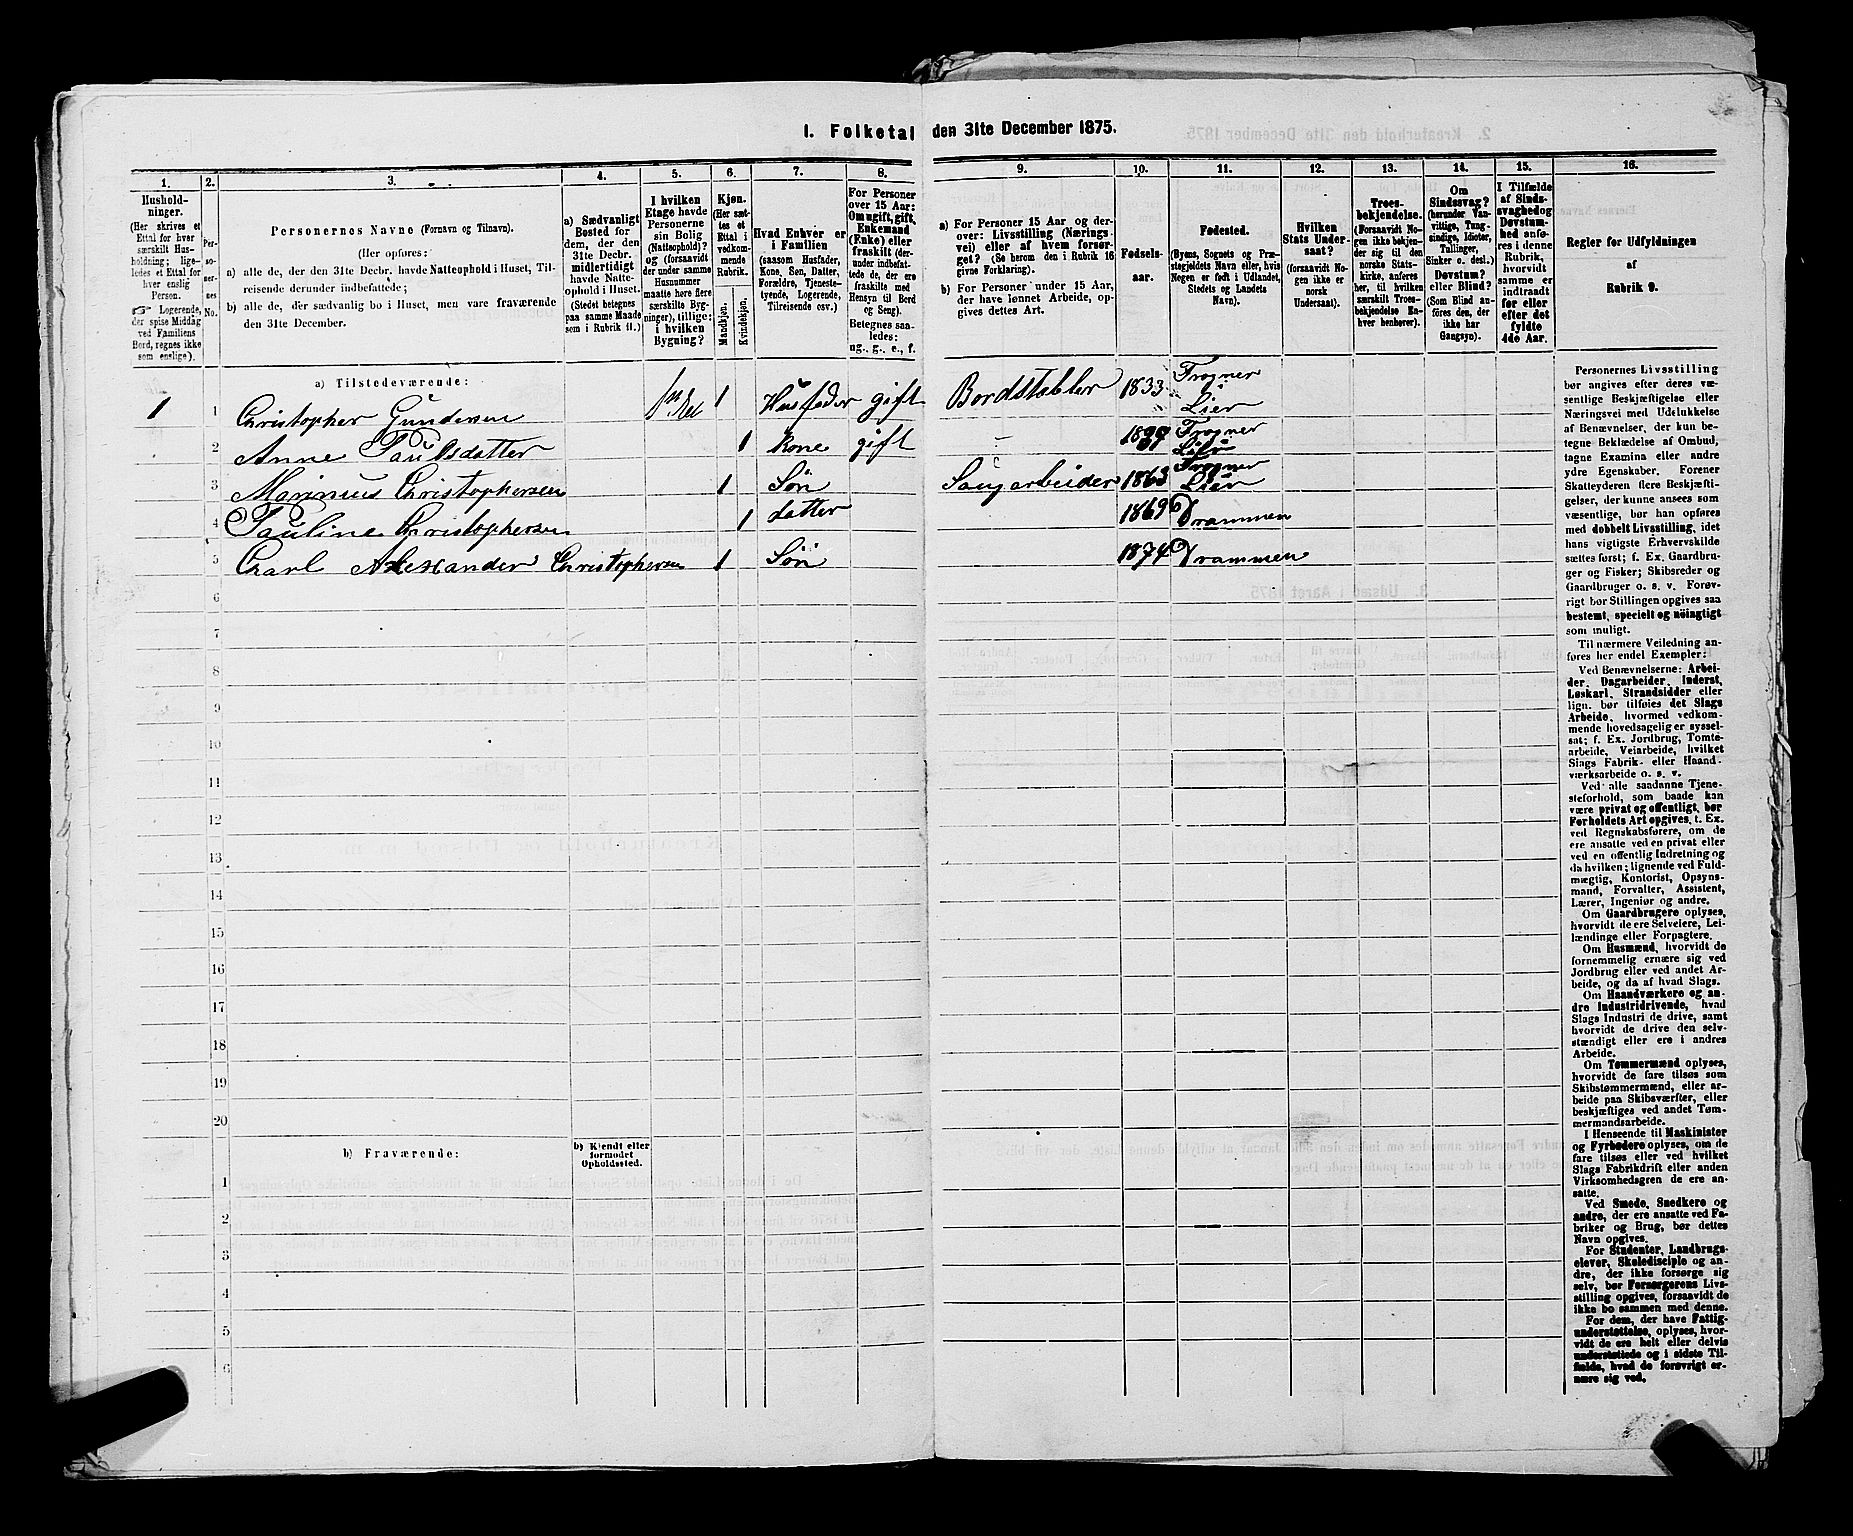 1. Folketal den 31te December 1875.
1.
Hushold-
ninger.
(Her skrives et
Ettal for hver
særskilt Hus-
holdning; lige-
ledes et Ettal for
hver enslig
Person.
☞ Logerende,
der spise Middag
ved Familiens
Bord, regnes ikke
som enslige).
2.
Per-
so-
ner-
nes
No.
3.
Personernes Navne (Fornavn og Tilnavn).
(Her opføres:
a) alle de, der den 31te Decbr. havde Natteophold i Huset, Til-
reisende derunder indbefattede;
b) alle de, der sædvanlig bo i Huset, men vare fraværende
den 31te December.
4.
a) Sædvanligt
Bosted for
dem, der den
31te Decbr.
midlertidigt
havde Natte-
ophold i Huset.
(Stedet betegnes
paa samme Maade
som i Rubrik 11.)
5.
I hvilken
Etage havde
Personerne
sin Bolig
(Natteophold)?
og (forsaavidt
der under samme
Husnummer
maatte høre flere
særskilte Byg-
ninger), tillige:
i hvilken
Bygning?
6.
Kjøn.
(Her sæt-
tes et
Ettal i
vedkom-
mende
Rubrik.
Mandkjøn.
Kvindekjøn.
7.
Hvad Enhver er
i Familien
(saasom Husfader,
Kone, Søn, Datter,
Forældre, Tjeneste-
tyende, Logerende,
Tilreisende osv.)
8.
For Personer
over 15 Aar:
Om ugift, gift,
Enkemand
(Enke) eller
fraskilt (der-
under indbefat-
tede de, der ere
fraskilte med
Hensyn til Bord
og Seng).
Betegnes saa-
ledes:
ug., g., e., f.
9.
a) For Personer 15 Aar og der-
over: Livsstilling (Nærings-
vei) eller af hvem forsør-
get? (Se herom den i Rubrik 16
givne Forklaring).
b) For Personer under 15 Aar,
der have lønnet Arbeide, op-
gives dettes Art.
10.
Fødsels-
aar.
11.
Fødested.
(Byens, Sognets og Præ-
stegjeldets Navn eller, hvis
Negen er født i Udlandet,
Stedets og Landets
Navn).
12.
Hvilken
Stats Under-
saat?
(forsaavidt No-
gen ikke er
norsk
Undersaat).
13.
Troes-
bekjendelse.
(Forsaavidt No-
gen ikke bekjen-
der sig til den
norske Stats-
kirke, anføres
her, til hvilken
særskilt Troes-
bekjendelse En-
hver henhører).
14.
Om
Sindssvag?
(herunder Van-
vittige, Tung-
sindige, Idioter,
Tullinger,
Sinker o. desl.)
Døvstum?
eller Blind?
(Som Blind an-
føres den, der
ikke har
Gangsyn).
15.
I Tilfælde
af Sinds-
svaghed og
Døvstum-
hed anfø-
res i denne
Rubrik,
hvorvidt
samme er
indtraadt
før eller
efter det
fyldte
4de Aar.
16.
Regler for Udfyldningen
af
Rubrik 9.
a) Tilstedeværende:
1 1 Christopher Gundersen 1ste Et 1 Husfader gift Bordstabler 1833 Frogner Lier
2 Anne Paulsdatter 1 kone gift Frogner Lier
3 Marinius Christophersen 1 Søn Saugarbeider 1863 Frogner Lier
4 Pauline Christophersen 1 datter 1869 Drammen
5 Carl Alexander Christophersen 1 Søn 1874 Drammen
6
7
8
9
10
11
12
13
14
15
16
17
18
19
20
b) Fraværende:
b) Kjendt eller
formodet
Opholdssted.
1
2
3
4
5
6
Personernes Livsstilling
bør angives efter deres væ-
sentlige Beskjæftigelse eller
Næringsvei med Udelukkelse
af Benævnelser, der kun be-
tegne Beklædelse af Ombud,
tagne Examina eller andre
ydre Egenskaber. Forener
Skatteyderen flere Beskjæfti-
gelser, der kunne ansees som
væsentlige, bør han opføres
med dobbelt Livsstilling, idet
hans vigtigste Erhvervskilde
sættes først; f. Ex. Gaardbru-
ger og Fisker; Skibsreder og
Gaardbruger o. s. v. Forøv-
rigt bør Stillingen opgives saa
bestemt, specielt og nöiagtigt
som muligt.
Til nærmere Veiledning an-
føres her endel Exempler:
Ved Benævnelserne: Arbei-
der, Dagarbeider, Inderst,
Løskarl, Strandsidder eller
lign. bør tilføies det Slags
Arbeide, hvormed vedkom-
mende hovedsagelig er syssel-
sat; f. Ex. Jordbrug, Tomte-
arbeide, Veiarbeide, hvilket
Slags Fabrik- eller Haand-
værksarbeide o. s. v.
Ved alle saadanne Tjene-
steforhold, som baade kan
være privat og offentligt, bør
Forholdets Art opgives, t. Ex.
ved Regnskabsførere, om de
ere ansatte ved en privat eller
ved en offentlig Indretning og
da hvilken; lignende ved Fuld-
mægtig, Kontorist, Opsyns-
mand, Forvalter, Assistent,
Lærer, Ingeniør og andre.
Om Gaardbrugere oplyses,
hvorvidt de ere Selveiere, Lei-
lændinge eller Forpagtere.
Om Husmænd, hvorvidt de
fornemmelig ernære sig ved
Jordbrug eller ved andet Ar-
beide, og da af hvad Slags.
Om Haandværkere og an-
dre Industridrivende, hvad
Slags Industri de drive, samt
hvorvidt de drive den selv-
stændigt eller ere i andres
Arbeide.
Om Tømmermænd oplyses,
hvorvidt de fare tilsøs som
Skibstømmermænd, eller ar-
beide paa Skibsværfter, eller
beskjæftiges ved andet Tøm-
mermandsarbeide.
I Henseende til Maskinister
og Fyrbødere oplyses, om de
fare tilsøs eller ved hvilket
Slags Fabrikdrift eller anden
Virksomhedsgren de ere an-
satte.
Ved Smede, Snedkere og
andre, der ere ansatte ved Fa-
briker og Brug, bør dettes
Navn opgives.
For Studenter, Landbrugs-
elever, Skoledisciple og an-
dre, der ikke forsørge sig
selv, bør Forsørgerens Livs-
stilling opgives, forsaavidt de
ikke bo sammen med denne.
For dem, der have Fattig-
understøttelse, oplyses, hvor-
vidt de ere helt eller delvis
understøttede og i sidste Til-
fælde, hvad de forøvrigt er-
nære sig ved.